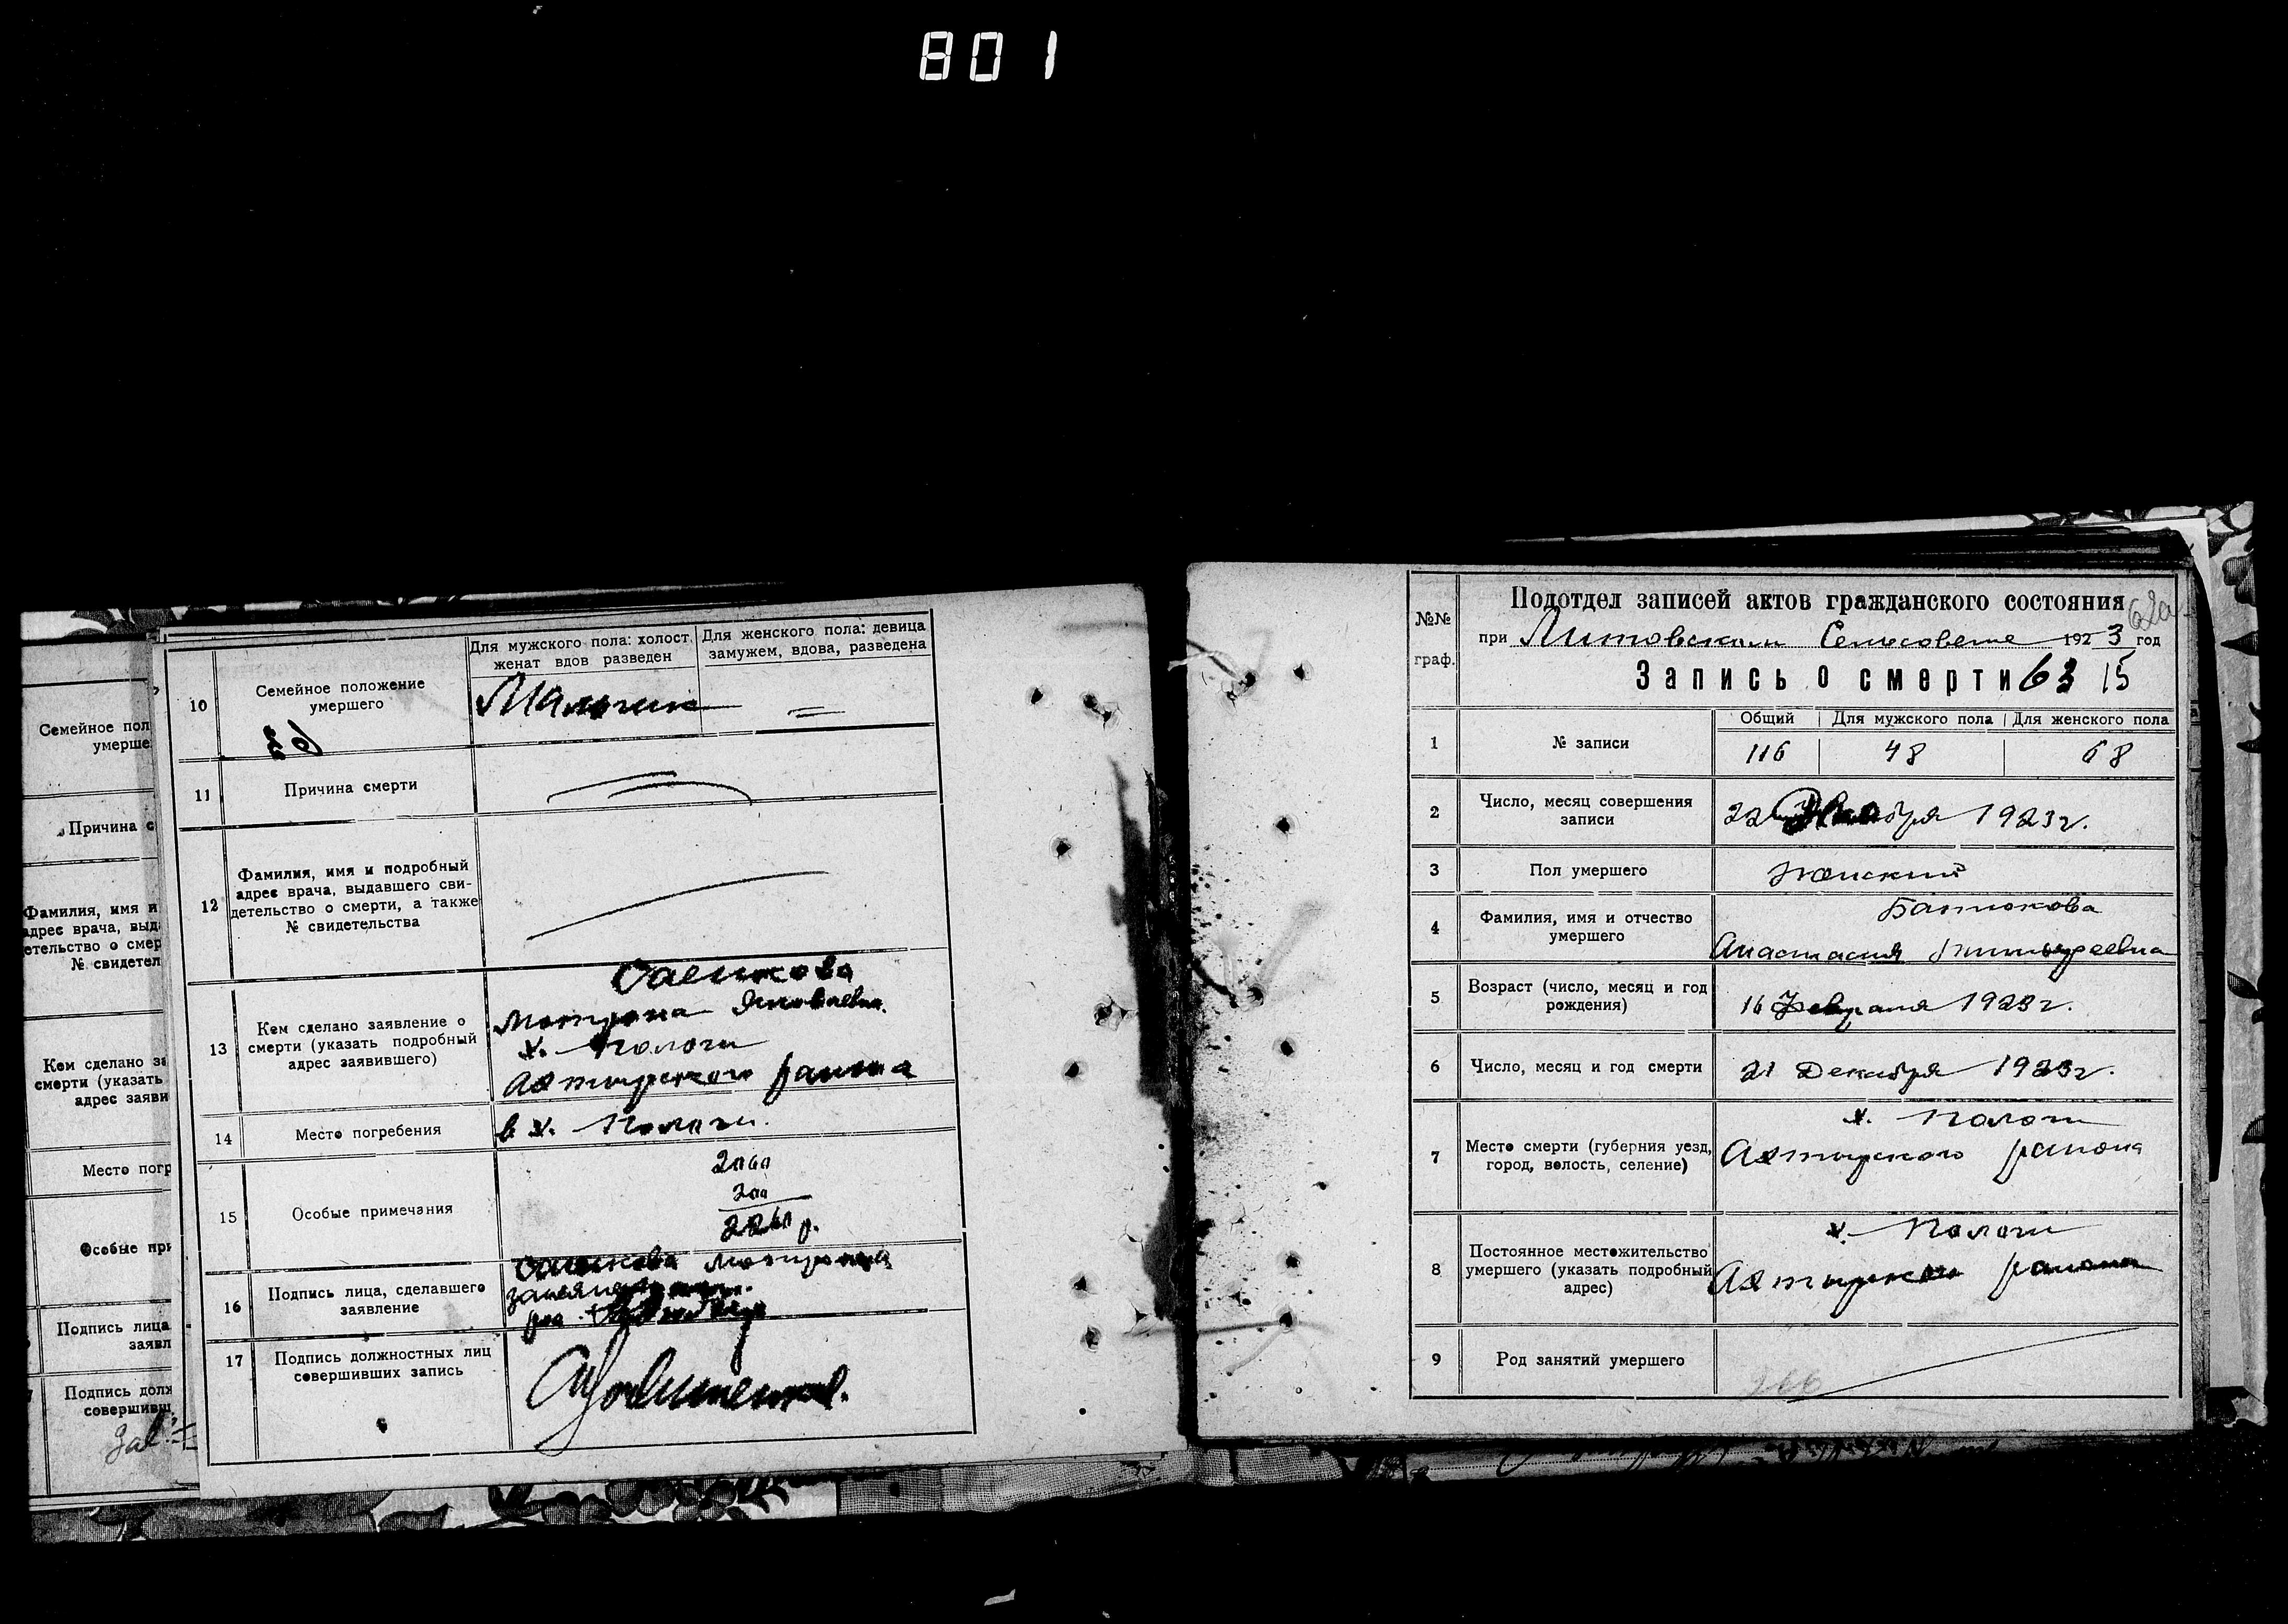 801
Семейное пол
умерше
Причина с
Фамилия, имя и
адрес врача, выд
етельство о смер
№ свидетел
Кем сделано за
смерти (указать
адрес заяви
Место погр
Особые при
Подпись лица
заявл
Подпись долж
совершивш
Зав.
10
Семейное положение
умершего
Для мужского пола: холост,
женат вдов разведен
Для женского пола: девица
замужем, вдова, разведена
11
Причина смерти
12
Фамилия, имя и подробный
адрес врача, выдавшего сви-
детельство о смерти, а также
№ свидетельства
13
Кем сделано заявление о
смерти (указать подробный
адрес заявившего)
Матрона Яковлевна
х. Пологи
Ахтырского района
14
Место погребения
в х. Пологи.
15
Особые примечания
2060
200
2260 р.
16
Подпись лица, сделавшего
заявление
Матрона
17
Подпись должностных лиц
совершивших запись
№№
граф.
Подотдел записей актов гражданского состояния
62а
при Литовском Сельсовете 1923 год
Запись о смерти 63 15
1
№ записи
Общий
Для мужского пола
Для женского пола
116
48
68
2
Число, месяц совершения
записи
22 Декабря 1923 г.
3
Пол умершего
Женский
4
Фамилия, имя и отчество
умершего
Батюкова
Анастасия
5
Возраст (число, месяц и год
рождения)
16 Февраля 1923 г.
6
Число, месяц и год смерти
21 Декабря 1923 г.
7
Место смерти (губерния уезд,
город, волость, селение)
х. Пологи
Ахтырского района
8
Постоянное местожительство
умершего (указать подробный
адрес)
х. Пологи
Ахтырского района
9
Род занятий умершего
266